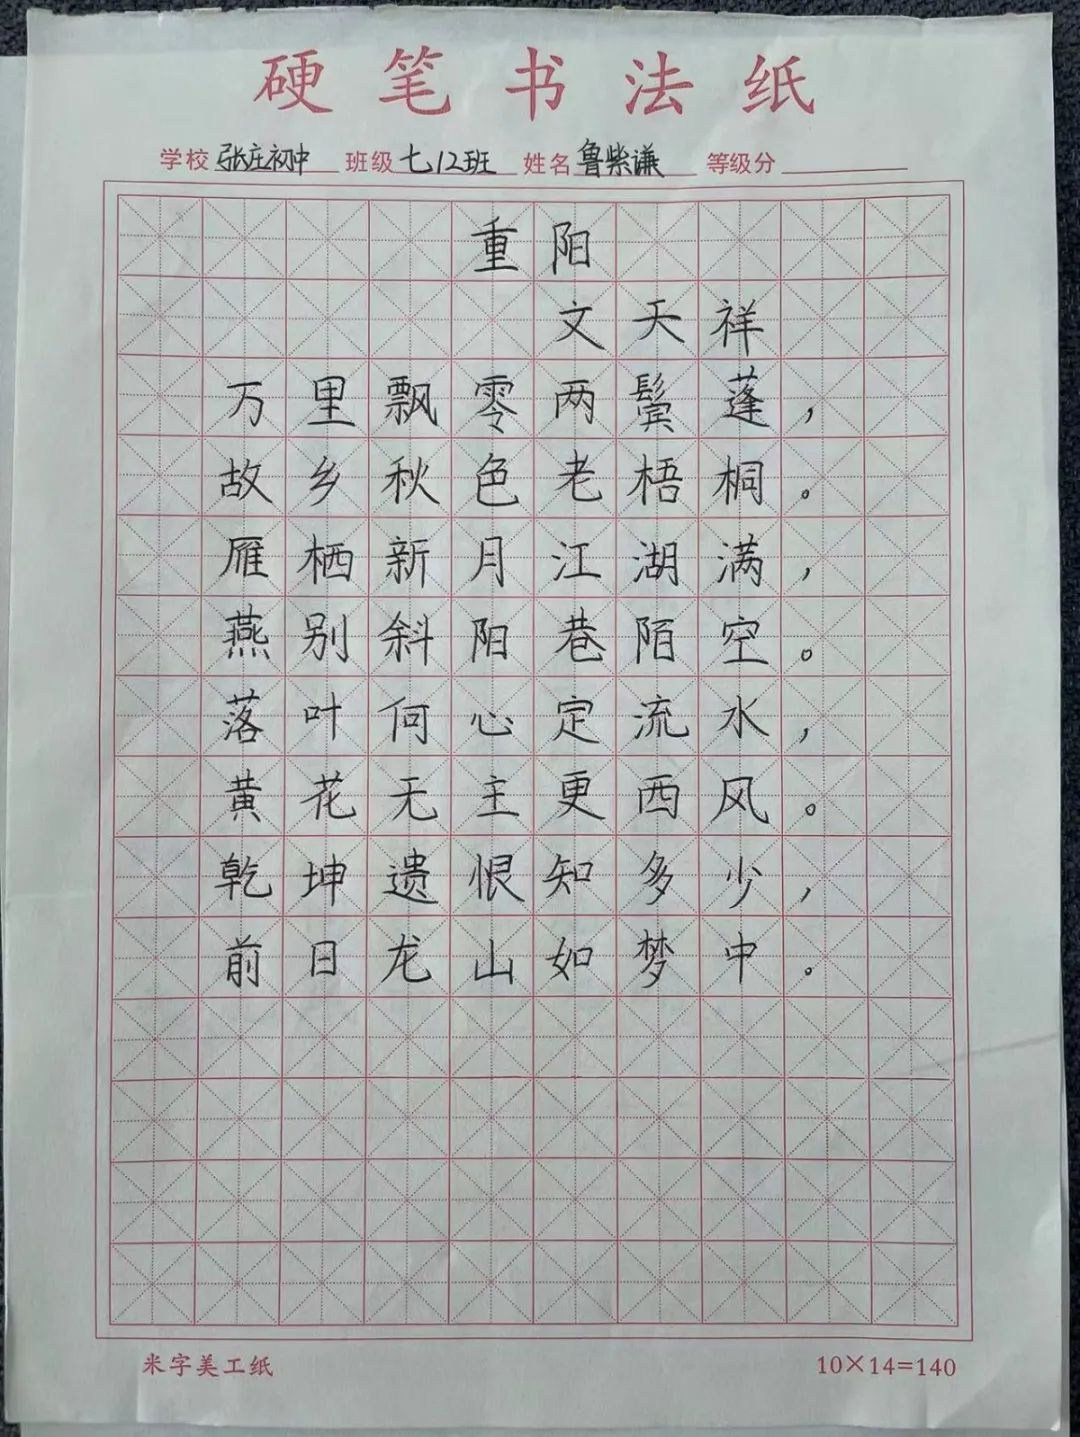 硬笔书法纸
学校 张庄初中 班级 七12班 姓名 鲁紫谦 等级分
重阳
文天祥
万里飘零两鬓蓬，
故乡秋色老梧桐。
雁栖新月江湖满，
燕别斜阳巷陌空。
落叶何心定流水，
黄花无主更西风。
乾坤遗恨知多少，
前日龙山如梦中。
米字美工纸 10×14=140